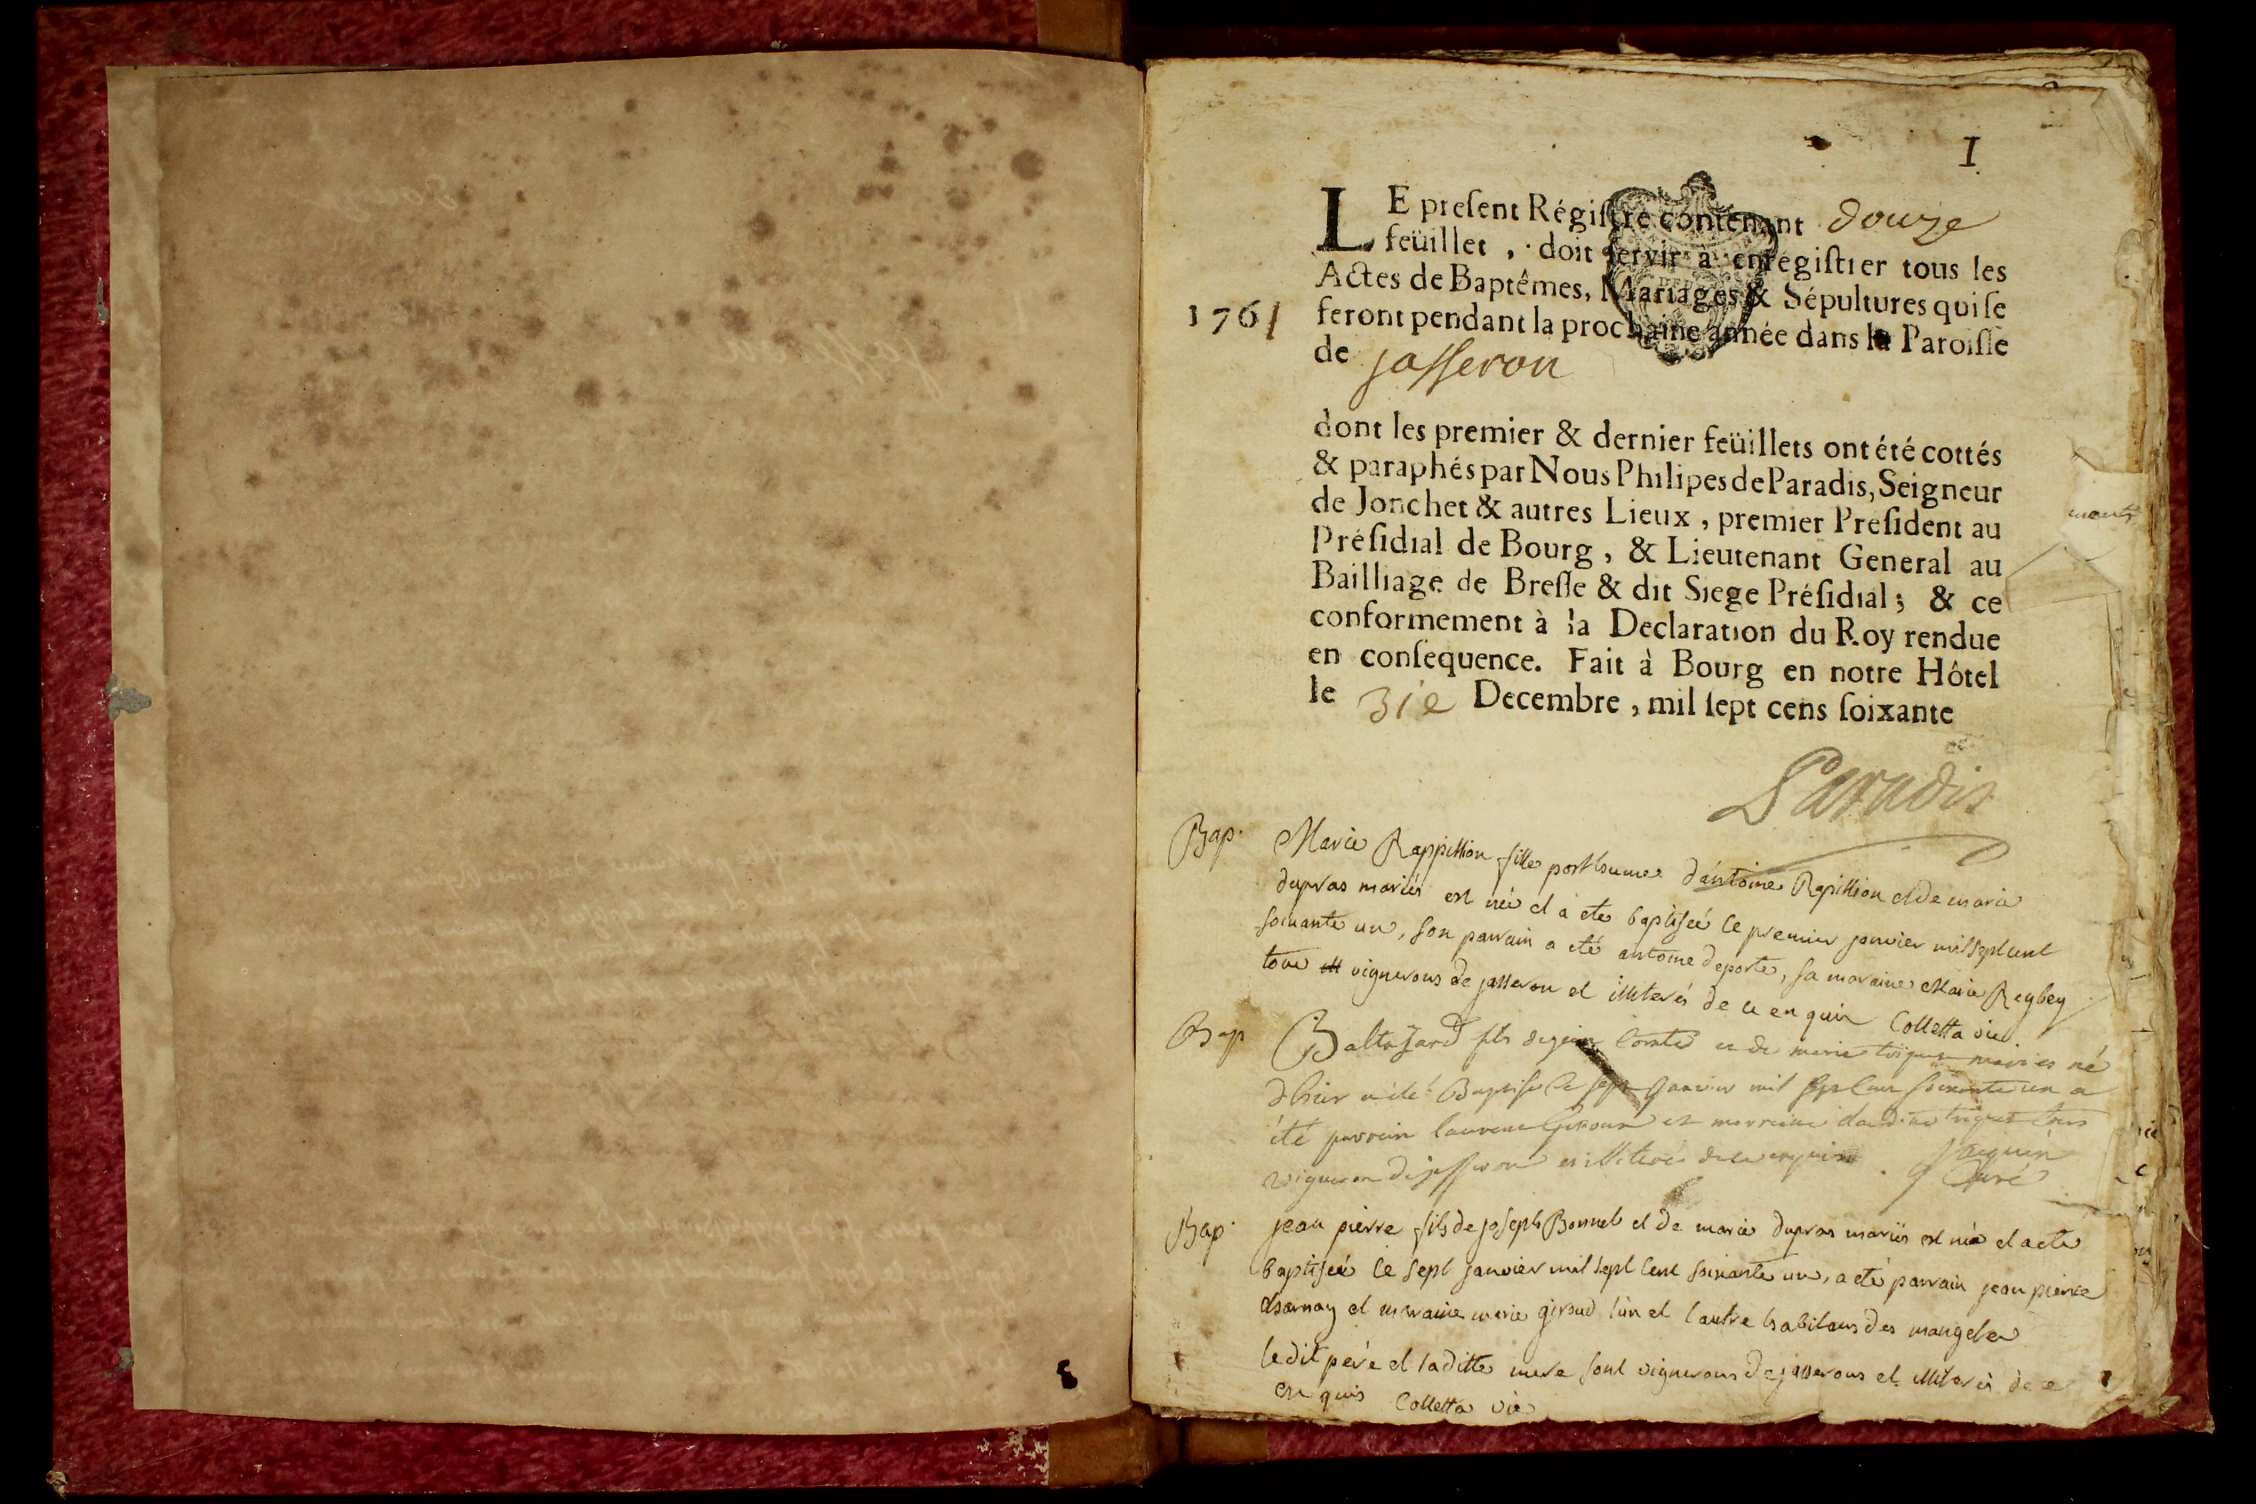 I
LE preſent Régiſtre contenant douze
feüillet, doit ſervir à enrégiſtrer tous les
Actes de Baptêmes, Mariages & Sépultures qui ſe
1761 feront pendant la prochaine année dans la Paroiſſe
de jasseron
dont les premier & dernier feüillets ont été cottés
& paraphés par Nous Philipes de Paradis, Seigneur
de Jonchet & autres Lieux, premier Préſident au
Préſidial de Bourg, & Lieutenant General au
Bailliage de Breſſe & dit Siege Préſidial; & ce
conformement à la Declaration du Roy rendue
en conſequence. Fait à Bourg en notre Hôtel
le 31e Decembre, mil ſept cens ſoixante
Paradis
Bap. Marie Rappillion fille posthume d'antoine Rapillion et de marie
dupras mariés est née et a eté baptiseé le premier janvier mil sept cent
soixante un, son parrain a eté antoine deporte, sa maraine Marie Reybey
tous vignerons de jasseron et illiterés de ce enquis Colletta vic
Bap Baltazard fils de jean Comte et de marie mariés né
d'hier a été Baptisé le sept janvier mil sept cent soixante un a
été parrain laurent et marraine tous
vigneron de jasseron et illiterés de ce enquis. Jacquin
Curé
Bap. jean pierre fils de joseph Bonnet et de marie dupras mariés est né et a eté
baptiseé le sept janvier mil sept cent soixante un, a eté parrain jean pierre
charnay et maraine marie giroud l'un et l'autre habitans des mangettes
ledit pere et laditte mere sont vignerons de jasserons et illiterés de ce
enquis Colletta vic